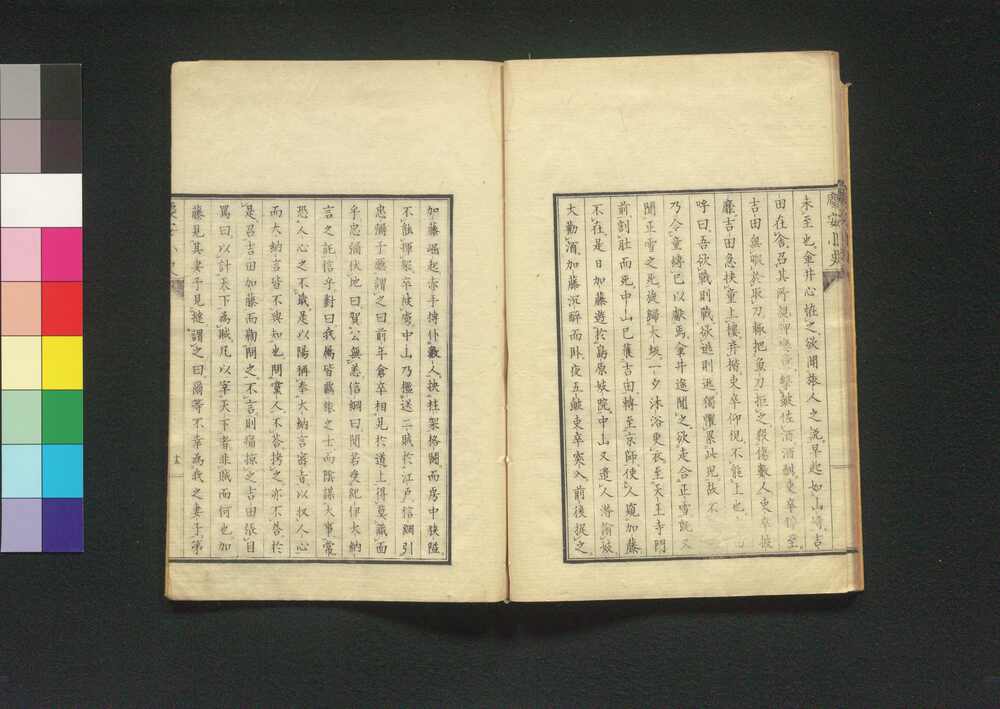 慶安小史
未至也金井心怪之欲聞旅人之説早起如山崎吉
田在舍召其所親
吉田與暇於取刀輙把魚刀拒之殺傷數人吏卒披
靡吉田急挟童上樓弃楷吏卒仰視不能上也
呼曰吾欲戰則戰欲逃則逃獨懼累此児故不
乃令童縛已以獻焉金井遙聞之欲走合正雪既又
聞正雪之死旋歸大坂一夕沐浴更衣至天王寺門
前割肚而死中山已獲吉田轉至京師使人窺加藤
不在是日加藤遊於島原妓院中山又遣人潜諭妓
大勸酒加藤沉醉而臥夜五皷吏卒突入前後捉之
加藤崛起赤手搏仆數人抉柱架格鬪而房中狹隘
不能揮報卒被虜中山乃檻送二賊於江戸信綱引
忠彌于廳謂之曰前年倉卒相見於道上得莫識面
乎忠彌伏地曰賀公無恙信綱曰聞若受紀伊大納
言之託信乎對曰我屬皆羈旅之士而陰謀大事常
恐人心之不壹是以陽稱奉大納言密旨以収人心
而大納言皆不與知也問黨人不答拷之亦不答於
是召吉田加藤而鞫問之不言則痛掠之吉田張目
罵曰以計天下為賊凡以宰天下者非賊而何也加
藤見其妻子見撻謂之曰爾等不幸為我之妻子第